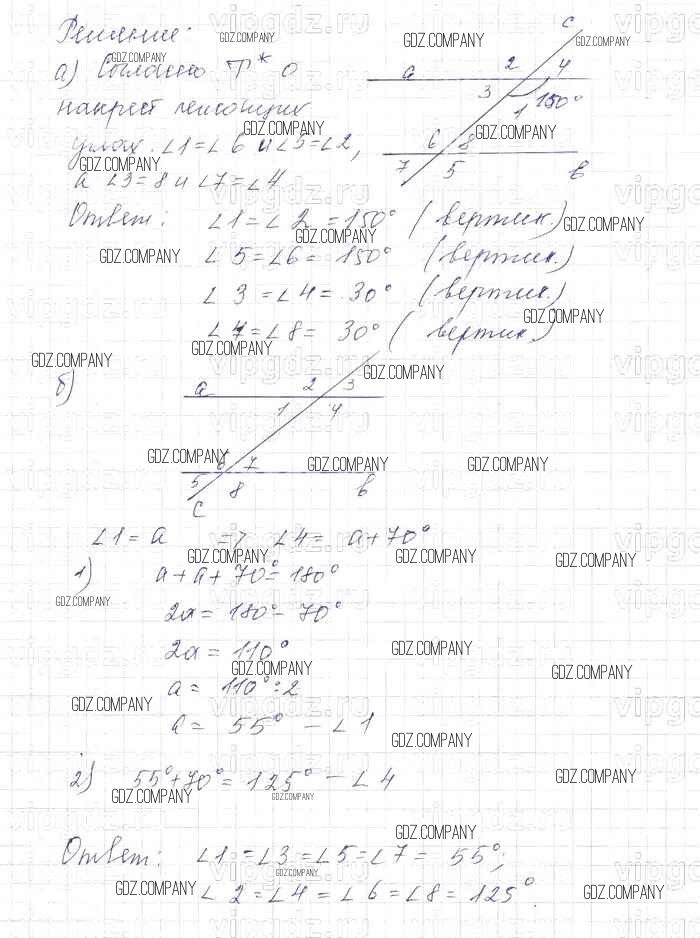 Решение:
а) Согласно Т* о
накрест лежащих
углах ∠1=∠6 и ∠5=∠2,
а ∠3=8 и ∠7=∠4
Ответ: ∠1=∠2=150° (вертик.)
∠5=∠6= 150° (вертик.)
∠3=∠4= 30° (вертик.)
∠7=∠8= 30° (вертик.)
a 2 4 c
3 1 150°
6 8
7 5 b
б)
a 2 3
1 4
6 7
5 8 b
c
∠1= a => ∠4= a+70°
1) a+a+70°=180°
2a= 180°-70°
2a= 110°
a= 110°:2
a= 55° - ∠1
2) 55°+70°= 125° - ∠4
Ответ: ∠1=∠3=∠5=∠7= 55°;
∠2=∠4=∠6=∠8= 125°.
GDZ.COMPANY
vipgdz.ru